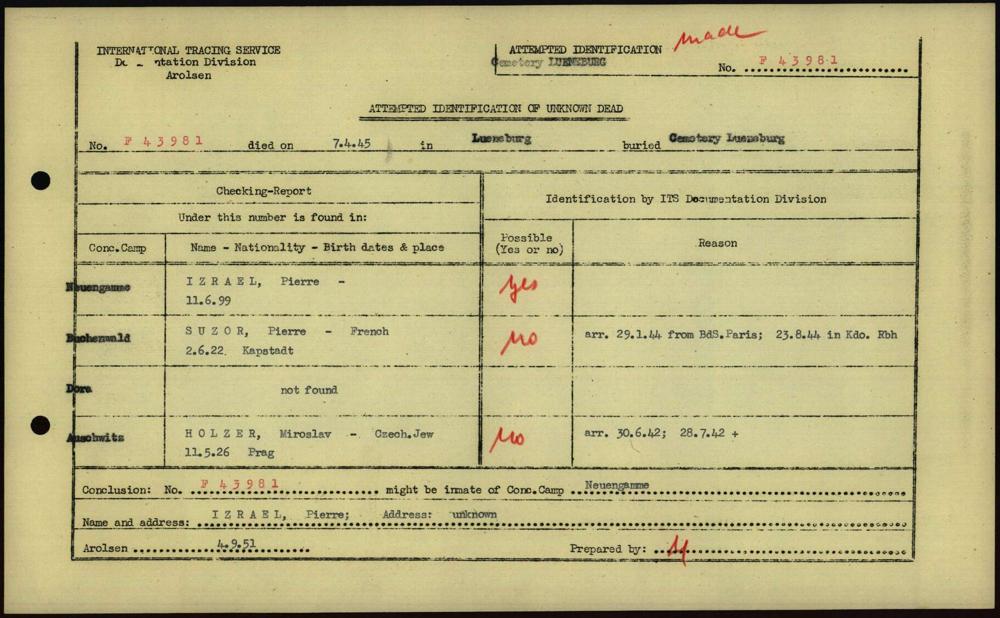 INTERNATIONAL TRACING SERVICE
ntation Division
Arolsen
ATTEMPTED IDENTIFICATION
made
Cemetery LUENEBURG
No. F 43981
ATTEMPTED IDENTIFICATION OF UNKNOWN DEAD
No. F 43981 died on 7.4.45 in Lueneburg buried Cemetery Lueneburg
Checking-Report
Identification by ITS Documentation Division
Under this number is found in:
Conc.Camp Name - Nationality - Birth dates & place Possible (Yes or no) Reason
Neuengamme IZRAEL, Pierre - yes
11.6.99
Buchenwald SUZOR, Pierre - French no arr. 29.1.44 from BdS.Paris; 23.8.44 in Kdo. Rbh
2.6.22. Kapstadt
Dora not found
Auschwitz HOLZER, Miroslav - Czech.Jew no arr. 30.6.42; 28.7.42 +
11.5.26 Prag
Conclusion: No. F 43981 might be inmate of Conc.Camp Neuengamme
Name and address: IZRAEL, Pierre; Address: unknown
Arolsen 4.9.51 Prepared by: